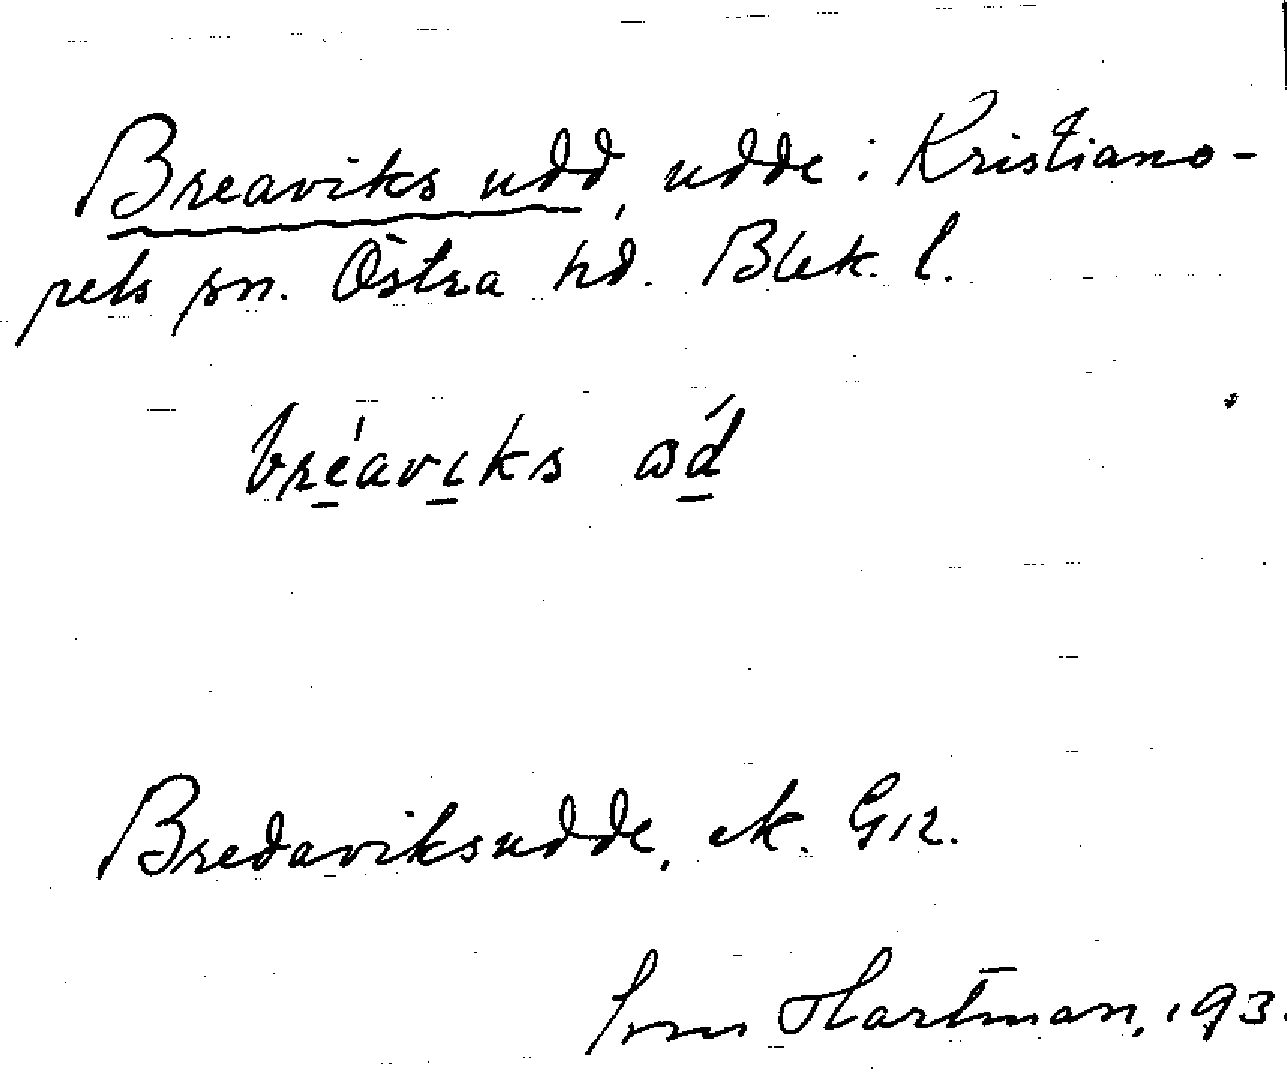 Breaviks udd, udde i Kristiano-
pels sn. Östra hd. Blek. l.
bréaviks
Bredaviksudde, ek. G12.
Hartman, 193